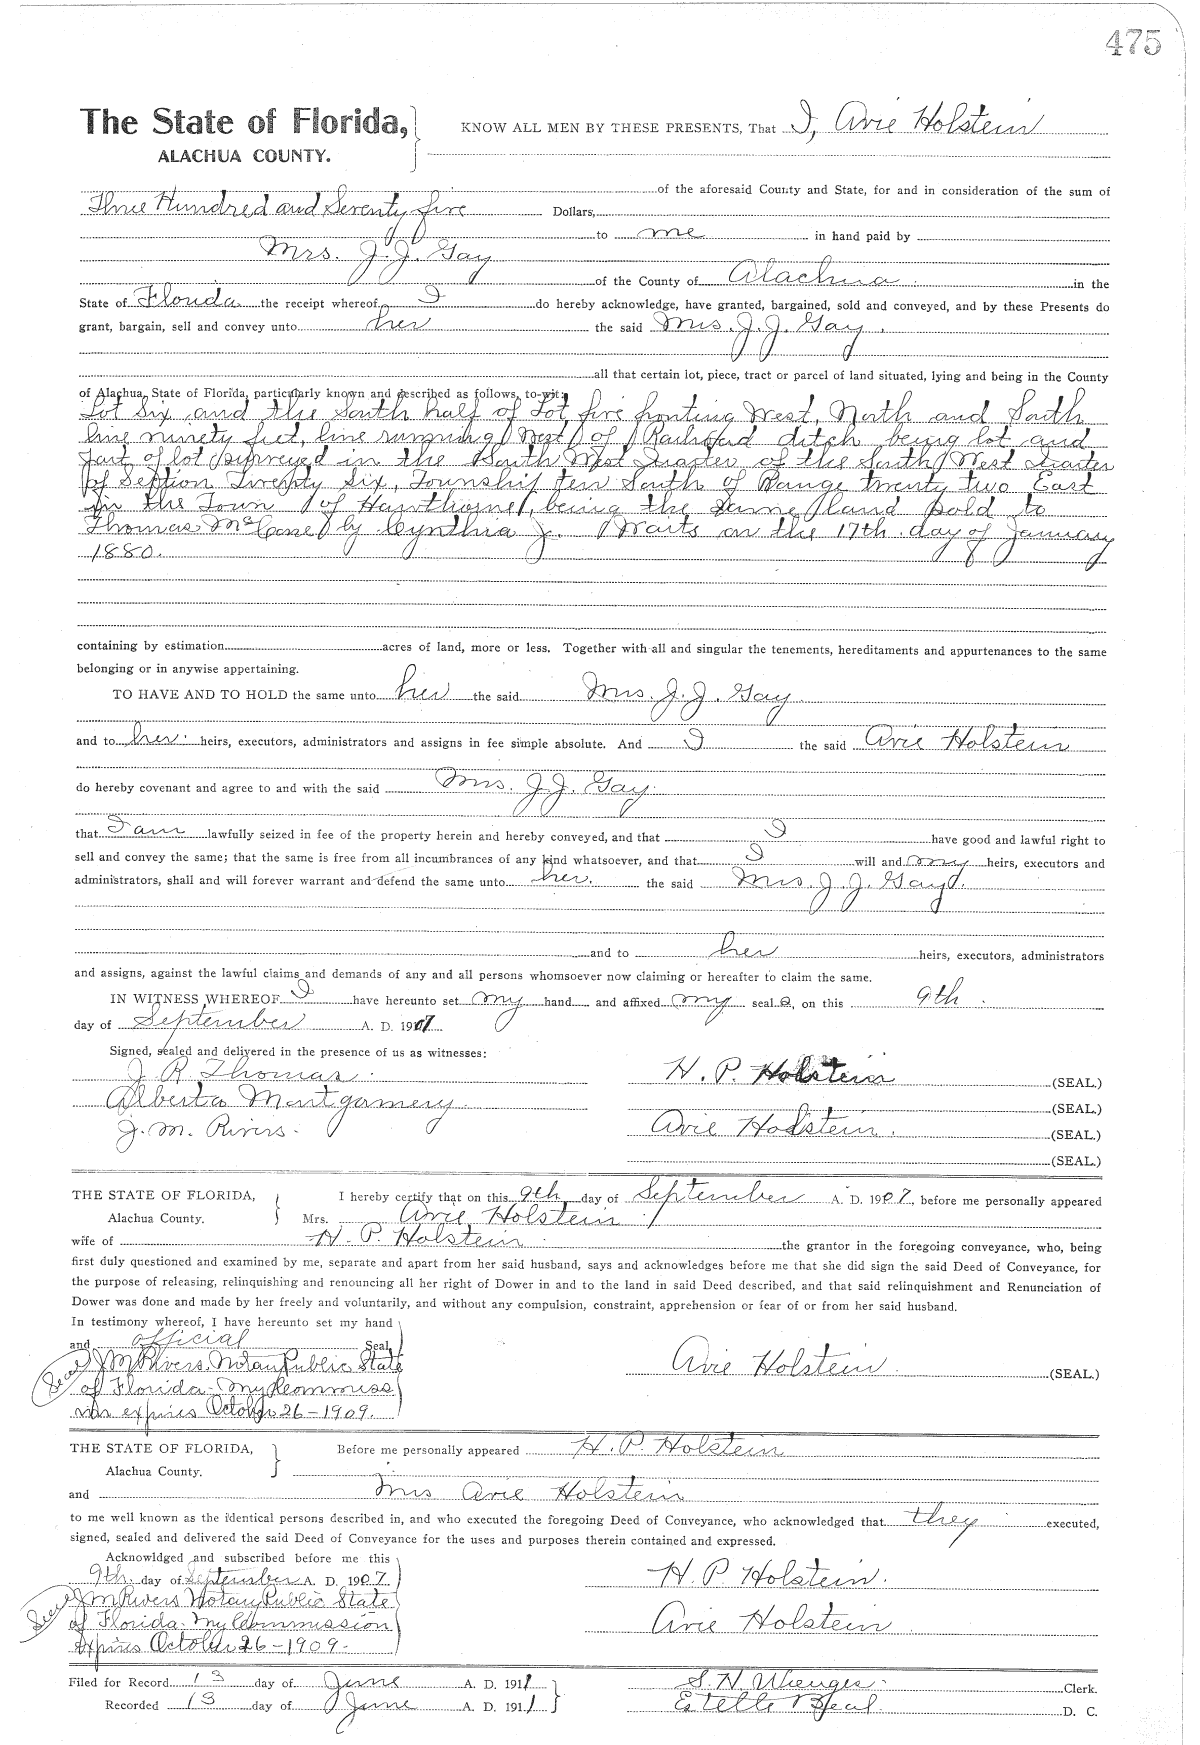 475
The State of Florida, KNOW ALL MEN BY THESE PRESENTS, That I, Avie Holstein
ALACHUA COUNTY.
of the aforesaid County and State, for and in consideration of the sum of
Three Hundred and Seventy five Dollars,
to me in hand paid by
Mrs. J. J. Gay
of the County of Alachua in the
State of Florida the receipt whereof I do hereby acknowledge, have granted, bargained, sold and conveyed, and by these Presents do
grant, bargain, sell and convey unto her the said Mrs. J. J. Gay.
all that certain lot, piece, tract or parcel of land situated, lying and being in the County
of Alachua, State of Florida, particularly known and described as follows, to-wit:
Lot Six and the South half of Lot five fronting West, North and South
line ninety feet, line running West of Railroad ditch being lot and
part of lot surveyed in the South West Quarter of the South West Quarter
of Section Twenty Six, Township ten South of Range twenty two East
in the Town of Hawthorne, being the same land sold to
Thomas by Cynthia J. Waits on the 17th. day of January
1880.
containing by estimation acres of land, more or less. Together with all and singular the tenements, hereditaments and appurtenances to the same
belonging or in anywise appertaining.
TO HAVE AND TO HOLD the same unto her the said Mrs. J. J. Gay
and to her heirs, executors, administrators and assigns in fee simple absolute. And I the said Avie Holstein
do hereby covenant and agree to and with the said Mrs. J. J. Gay.
that I am lawfully seized in fee of the property herein and hereby conveyed, and that I have good and lawful right to
sell and convey the same; that the same is free from all incumbrances of any kind whatsoever, and that I will and my heirs, executors and
administrators, shall and will forever warrant and defend the same unto her. the said Mrs. J. J. Gay.
and to her heirs, executors, administrators
and assigns, against the lawful claims and demands of any and all persons whomsoever now claiming or hereafter to claim the same.
IN WITNESS WHEREOF I have hereunto set my hand and affixed my seal, on this 9th.
day of September A. D. 1907.
Signed, sealed and delivered in the presence of us as witnesses:
J. R. Thomas. H. P. Holstein (SEAL.)
Alberta Montgomery. (SEAL.)
J. M. Rivers. Avie Holstein. (SEAL.)
(SEAL.)
THE STATE OF FLORIDA, I hereby certify that on this 9th day of September A. D. 1907, before me personally appeared
Alachua County. Mrs. Avie Holstein
wife of H. P. Holstein the grantor in the foregoing conveyance, who, being
first duly questioned and examined by me, separate and apart from her said husband, says and acknowledges before me that she did sign the said Deed of Conveyance, for
the purpose of releasing, relinquishing and renouncing all her right of Dower in and to the land in said Deed described, and that said relinquishment and Renunciation of
Dower was done and made by her freely and voluntarily, and without any compulsion, constraint, apprehension or fear of or from her said husband.
In testimony whereof, I have hereunto set my hand
and official Seal,
Seal J M Rivers Notary Public State Avie Holstein (SEAL.)
of Florida. My Commiss
ion expires October 26-1909.
THE STATE OF FLORIDA, Before me personally appeared H. P. Holstein
Alachua County.
and Mrs Avie Holstein
to me well known as the identical persons described in, and who executed the foregoing Deed of Conveyance, who acknowledged that they executed,
signed, sealed and delivered the said Deed of Conveyance for the uses and purposes therein contained and expressed.
Acknowldged and subscribed before me this
9th. day of September A. D. 1907 H. P. Holstein.
Seal J M Rivers Notary Public State
of Florida. My Commission Avie Holstein
Expires October 26-1909.
Filed for Record 13 day of June A. D. 1911 S. H. Wienges. Clerk.
Recorded 13 day of June A. D. 1911 Estelle Beal D. C.